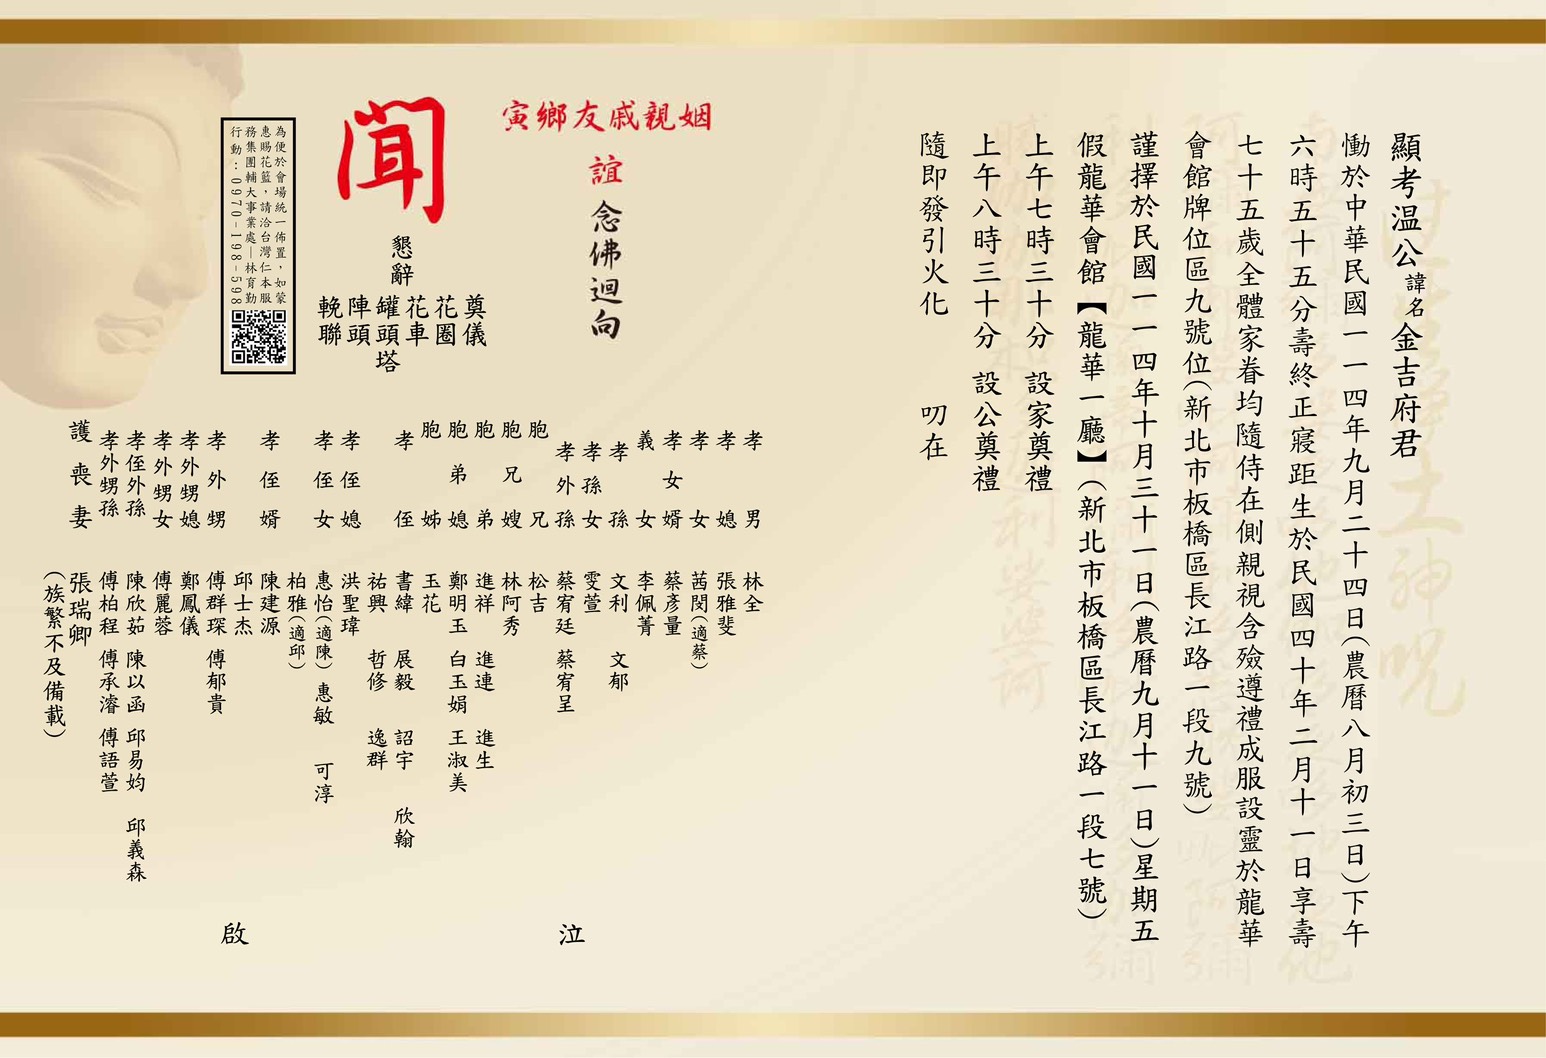 顯考温公諱名金吉府君
慟於中華民國一一四年九月二十四日(農曆八月初三日)下午
六時五十五分壽終正寢距生於民國四十年二月十一日享壽
七十五歲全體家眷均隨侍在側親視含殮遵禮成服設靈於龍華
會館牌位區九號位(新北市板橋區長江路一段九號)
謹擇於民國一一四年十月三十一日(農曆九月十一日)星期五
假龍華會館【龍華一廳】(新北市板橋區長江路一段七號)
上午七時三十分 設家奠禮
上午八時三十分 設公奠禮
隨即發引火化 叨在
寅鄉友戚親姻
誼 念佛迴向
聞
懇辭
奠儀
花圈
花車
罐頭塔
陣頭
輓聯
為便於會場統一佈置，如蒙
惠賜花籃，請洽台灣仁本服
務集團輔大事業處－林育勤
行動：0970-198-598
孝男 林全
孝媳 張雅斐
孝女 茜閔(適蔡)
孝女婿 蔡彥量
義女 李佩菁
孝孫 文利 文郁
孝孫女 雯萱
孝外孫 蔡宥廷 蔡宥呈
胞兄 松吉
胞兄嫂 林阿秀
胞弟 進祥 進連 進生
胞弟媳 鄭明玉 白玉娟 王淑美
胞姊 玉花
孝侄 書緯 展毅 詔宇 欣翰
祐興 哲修 逸群
孝侄媳 洪聖瑋
孝侄女 惠怡(適陳) 惠敏 可淳
柏雅(適邱)
孝侄婿 陳建源
邱士杰
孝外甥 傅群琛 傅郁貴
孝外甥媳 鄭鳳儀
孝外甥女 傅麗蓉
孝侄外孫 陳欣茹 陳以函 邱易妁 邱義森
孝外甥孫 傅柏程 傅承濬 傅語萱
護喪妻 張瑞卿
(族繁不及備載)
泣
啟